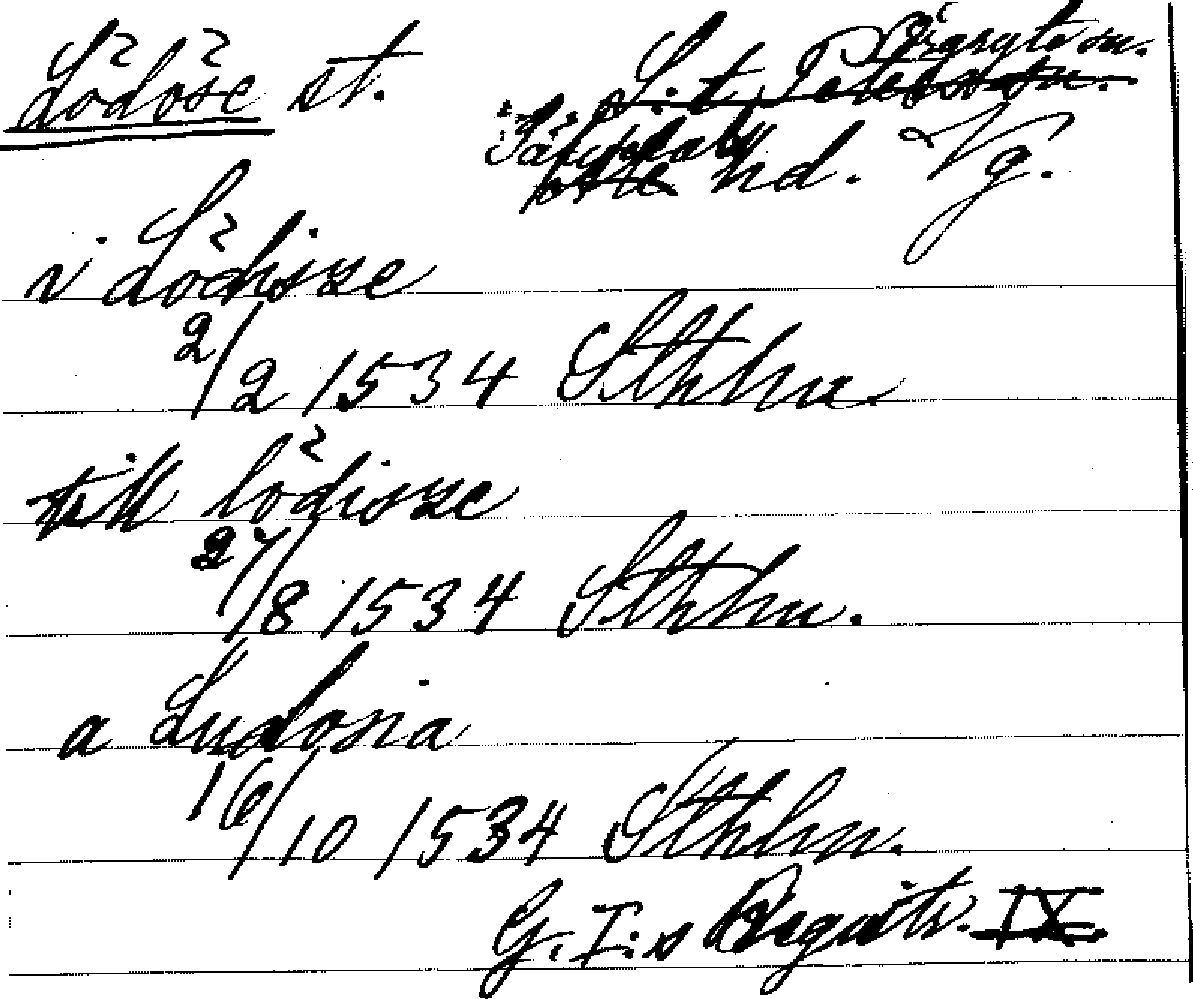 Lödöse st. S:t Peders sn.
hd. Vg.
i Lödisze
2/2 1534 Sthlm
till lödisze
27/8 1534 Sthlm.
a Ludosia
16/10 1534 Sthlm.
G. I:s Registr. IX